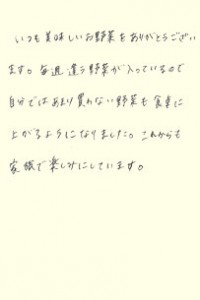 いつも美味しいお野菜をありがとうござい
ます。毎週違う野菜が入っているので
自分ではあまり買わない野菜も食卓に
上がるようになりました。これからも
家族で楽しみにしています。